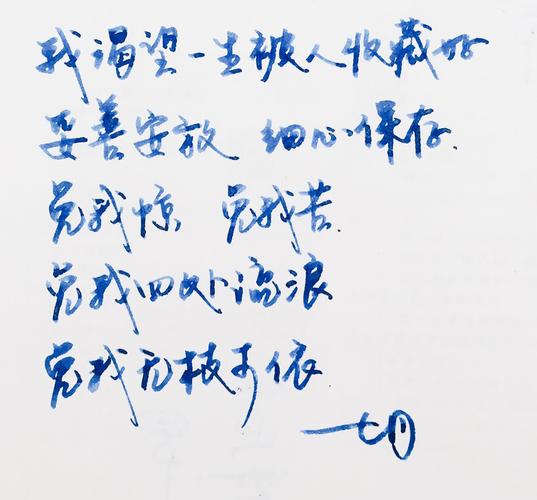 我渴望一生被人收藏好
妥善安放 细心保存.
免我惊 免我苦.
免我四处流浪
免我无枝可依
七月